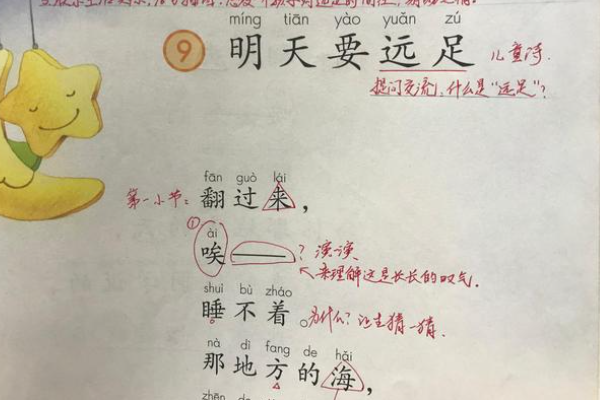 míng tiān yào yuǎn zú
9 明天要远足 儿童诗.
提问交流,什么是“远足”?
fān guò lái
第一小节: 翻过来,
ài
① 唉——? 读一读
来理解这是长长的叹气.
shuì bù zháo
睡不着。为什么? 让生猜一猜.
nà dì fang de hǎi
那地方的海,
zhēn de